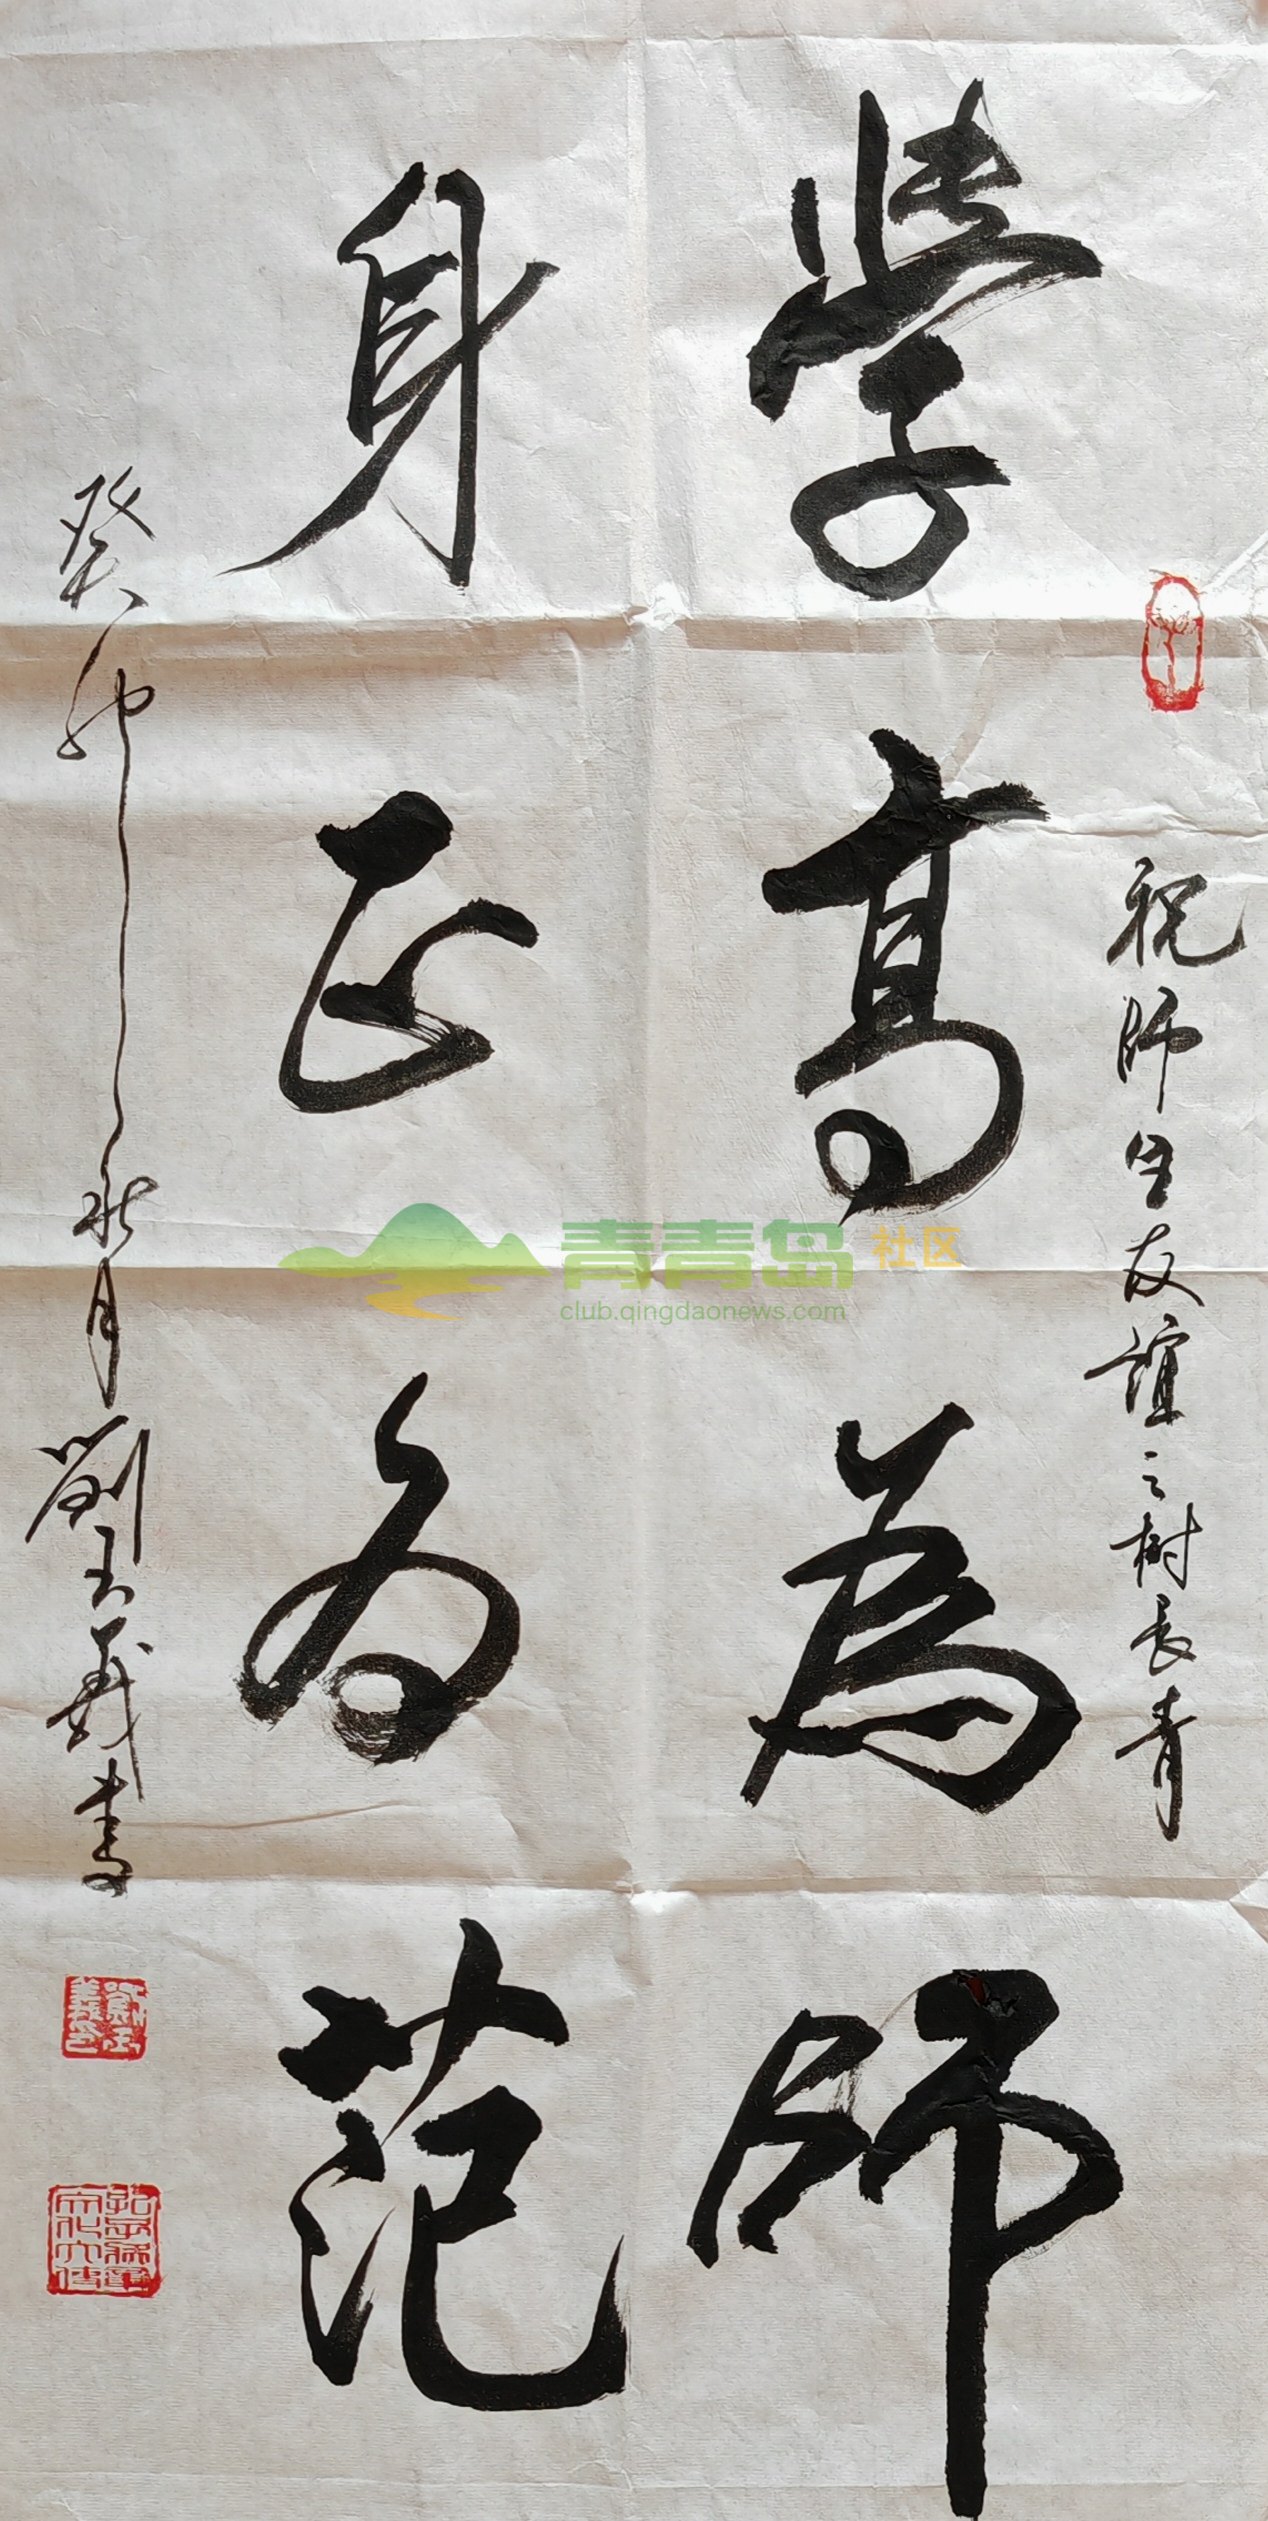 祝師生友誼之樹長青
學高為師
身正為范
癸卯秋月劉玉義書
青青岛社区
club.qingdaonews.com